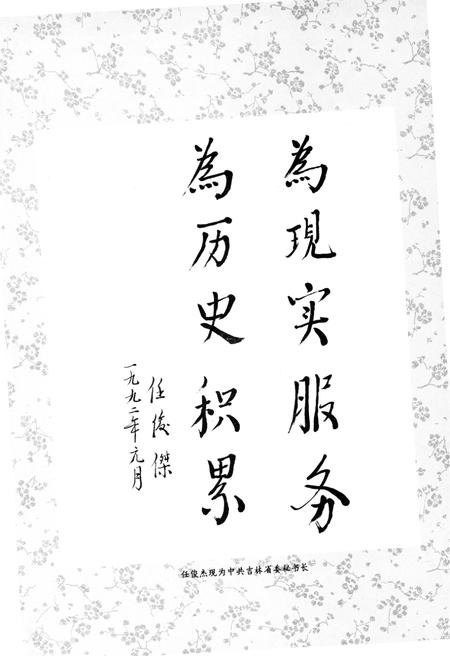 為現实服务
為历史积累
任俊傑
一九九二年元月
任俊杰现为中共吉林省委秘书长